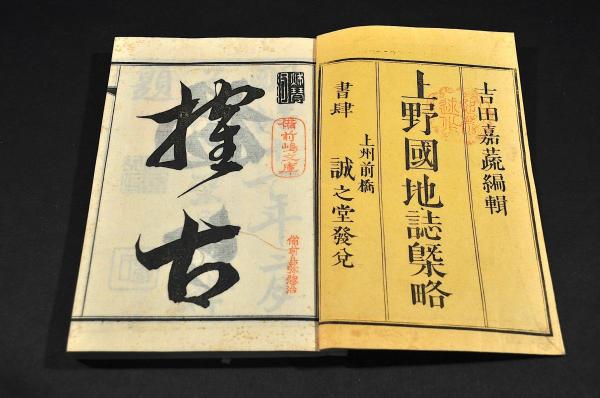 吉田嘉蔬編輯
上野國地誌槩略
上州前橋
書肆 誠之堂發兌
搉古
備前嶋文庫